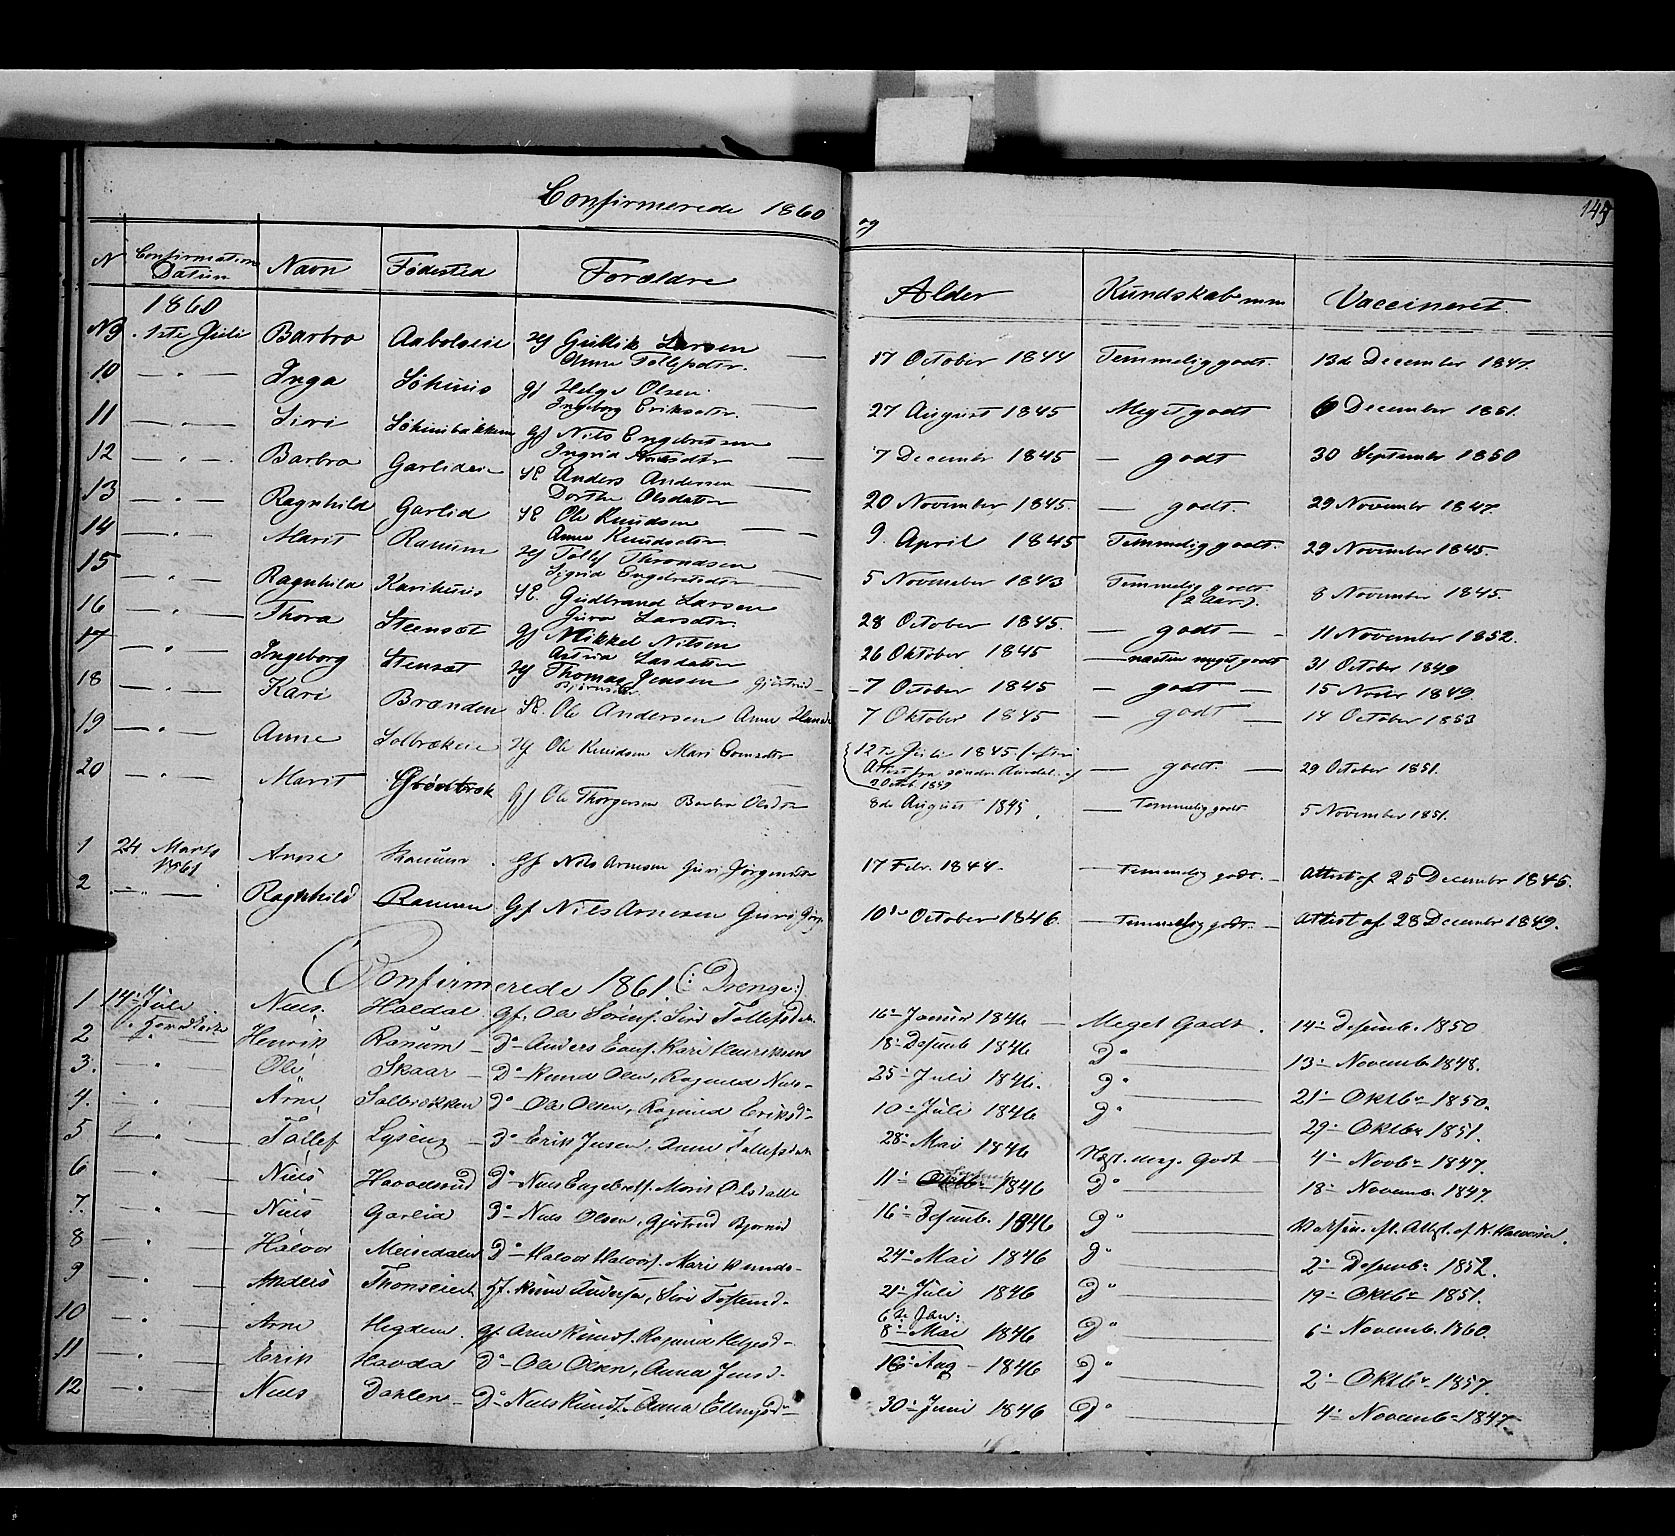 Confirmerede 1860 og 145
N Confirmations Datum Navn Fødested Forældre Alder Kundskab mm Vaccineret
1860
No 9 1ste Juli Barbro Gullik Larsen Anne 17 October 1844 Temmelig godt. 13de December 1847.
10 — " — Inga Helge Olsen Ingeborg Eriksdtr. 27 August 1845 Meget godt 6 December 1851.
11 — " — Siri Gf Nils Engebretsen Ingrid 7 December 1845 — godt 30 September 1850
12 — " — Barbro Garlideie SE Anders Andersen Dorthe Olsdatter 20 November 1845. — godt. 29 November 1847.
13 — " — Ragnhild Garlid SE Ole Knudsen Anne Knudsdtr 9. April 1845 Temmelig godt. 29 November 1845.
14 — " — Marit Ranum Tollef Throndsen Sigrid Engebretsdtr 5 November 1843 Temmelig godt (2 Aar). 8 November 1845.
15 — " — Ragnhild Karihuus SE. Gudbrand Larsen Guro Larsdtr. 28 October 1845. — godt — 11 November 1852.
16 — " — Thora Steensæt Gf Mikkel Nilsen Astrid Larsdatter 26 Oktober 1845 — næsten meget godt 31 October 1849
17 — " — Ingeborg Stensæt Thomas Jensen Gjertrud Bjørnsdtr — 7 October 1845 — godt — 15 Novbr 1849.
18 — " — Kari Brænden SE. Ole Andersen Anne 7 Oktober 1845 — godt — 14 October 1853
19 — " — Anne Solbrækeie Ole Knudsen Mari 12te Juli 1845 (efter Attest fra søndre Aurdal af 2 Octob 1859 — godt. — 29 October 1851.
20 — " — Marit Gf Ole Thorgersen Barbro Olsdtr 8de August 1845. — Temmelig godt 5 November 1851.
1 24 Marts 1861 Anna Ranum. Gf Nils Arnesen Guri Jørgensdtr 17 Febr. 1844. — Temmelig godt. — Attest af 25 December 1845.
2 — " — Ragnhild Ranum Gf Nils Arnesen Guri 10de October 1846. — Temmelig godt. — Attest af 28 December 1849.
Confirmerede 1861 (: Drenge:)
1 14de Juli Niels. Haldal Gf. Ole Siri Tollefsdtr. 16- Januar 1846 — Meget Godt. 14- Desemb. 1850
2 — " — Henrik Ranum — Do- Anders Kari Henriksen 18- Desemb. 1846 Do 13- Novemb. 1848.
3. — " — Ole Skaar — Do- Knud Olsen, Ragnild Niels- 25- Juli 1846. Do 21- Oktbr 1850.
4. — " — Arne, Solbrækken Do- Ole Olsen, Ragnild Eriksd- 10- Juli 1846 Do 29- Oktbr 1851.
5 — " — Tollef Lyseng — Do- Erik Jensen, Anne Tollefsdtr 28- Mai 1846 Godt — 4- Novbr 1847.
6 — " — Niels Havvelsrud Do- Niels Engebretsen. Marit Olsdatter 11- 1846 Do 18- Novemb. 1847.
7. — " — Niels Garlid Do- Niels Olsen, Gjertrud Bjørnsd 16- Desemb. 1846 Do Attest. af
8 — " — Halvor Meisedalen Do- Halvor Halvors. Mari Knuds- 24- Mai 1846 Do 2- Desemb. 1852.
9 — " — Anders Thonseiet Gf. Knud Andersen, Siri 21- Juli 1846 Do 19- Oktbr 1851.
10 — " — Arne Hegden. Gf Arne Knuds. Ragnild Helgesd- 6te Jan: 8- Mai 1846 Do 6- Novemb. 1860.
11 — " — Erik Havda Do- Ole Olsen, Anna Jensd- 16- Aug — 1846 Do 2- Oktbr 1857.
12 — " — Niels Dahlen — Do- Niels Knuds. Anna Ellingsd- 30- Juni 1846 Do 4- Novemb. 1847.